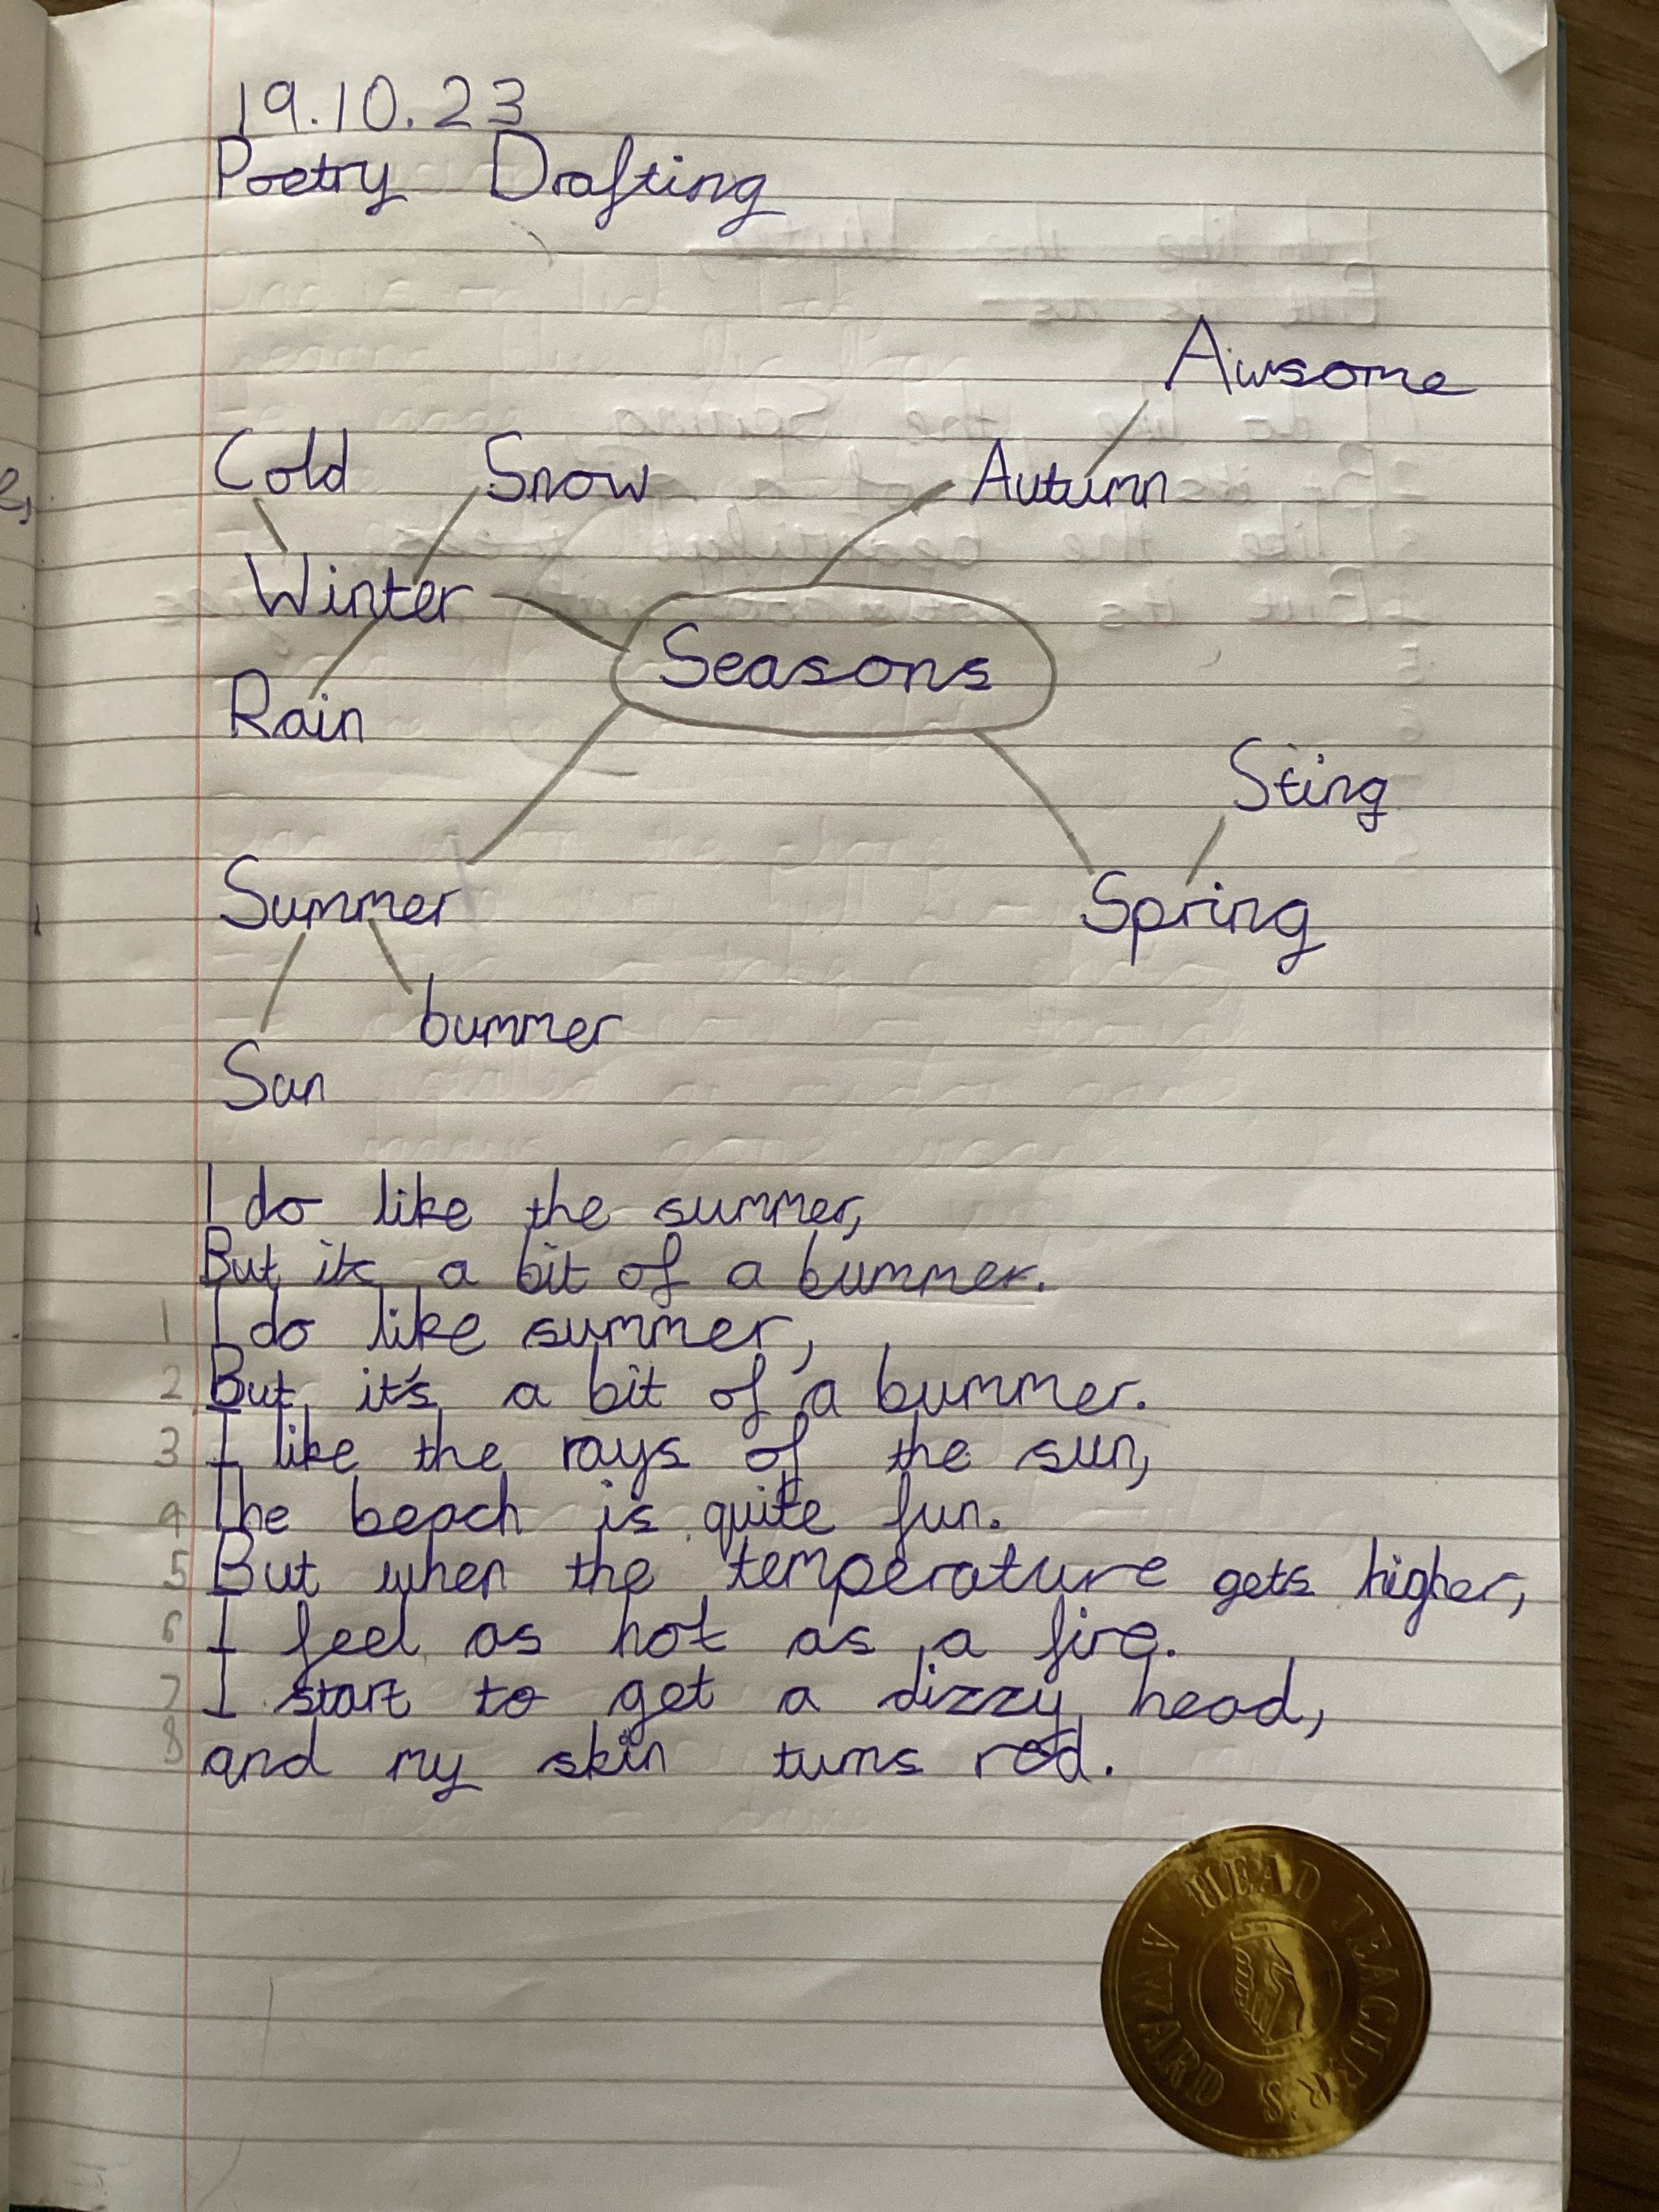 19.10.23
Poetry Drafting
Awsome
Cold Snow Autumn
Winter
Seasons
Rain
Sting
Summer Spring
bummer
Sun
I do like the summer,
But its a bit of a bummer.
1 I do like summer,
2 But it's a bit of a bummer.
3 I like the rays of the sun,
4 The beach is quite fun.
5 But when the temperature gets higher,
6 I feel as hot as a fire.
7 I start to get a dizzy head,
8 and my skin turns red.
HEAD TEACHER'S AWARD